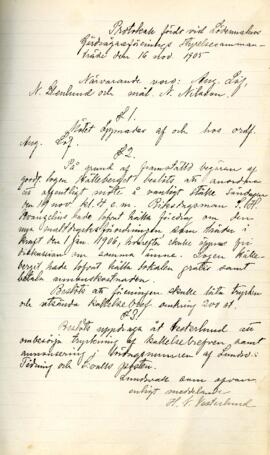 Protokoll fördt vid Lödermalms
Hårdvägaförenings styrelsesamman-
träde den 16 nov 1905
Närvarande voro: Aug. Löf,
N. Stenlund och mål. N. Nilsson.
§ 1.
Mötet öppnades af och hos ordf.
Aug. Löf.
§ 2.
På grund af framställd begäran af
godt. logen Hälleberget beslöts att anordna
ett offentligt möte å vanligt ställe söndagen
den 19 nov kl. 4 e.m. Riksdagsman
Evangelius hade lofvat hålla föredrag om den
nya rusdrycksförordningen som träder i
kraft den 1 jan 1906, hvarefter skulle öppnas fri
diskussion om samma ämne. Logen Hälle-
berget had lofvat hålla lokalen gratis samt
betala annonskostnaden.
Beslöts att föreningen skulle låta trycka
och utsända kallelsebref omkring 200 st.
§ 3.
Beslöts uppdraga åt Vesterlund att
ombesörja tryckning af kallelsebrefven samt
annonsering i Sundsv.
Tidning och
Sundsvall som ofvan
enligt meddelande
H. V. Vesterlund